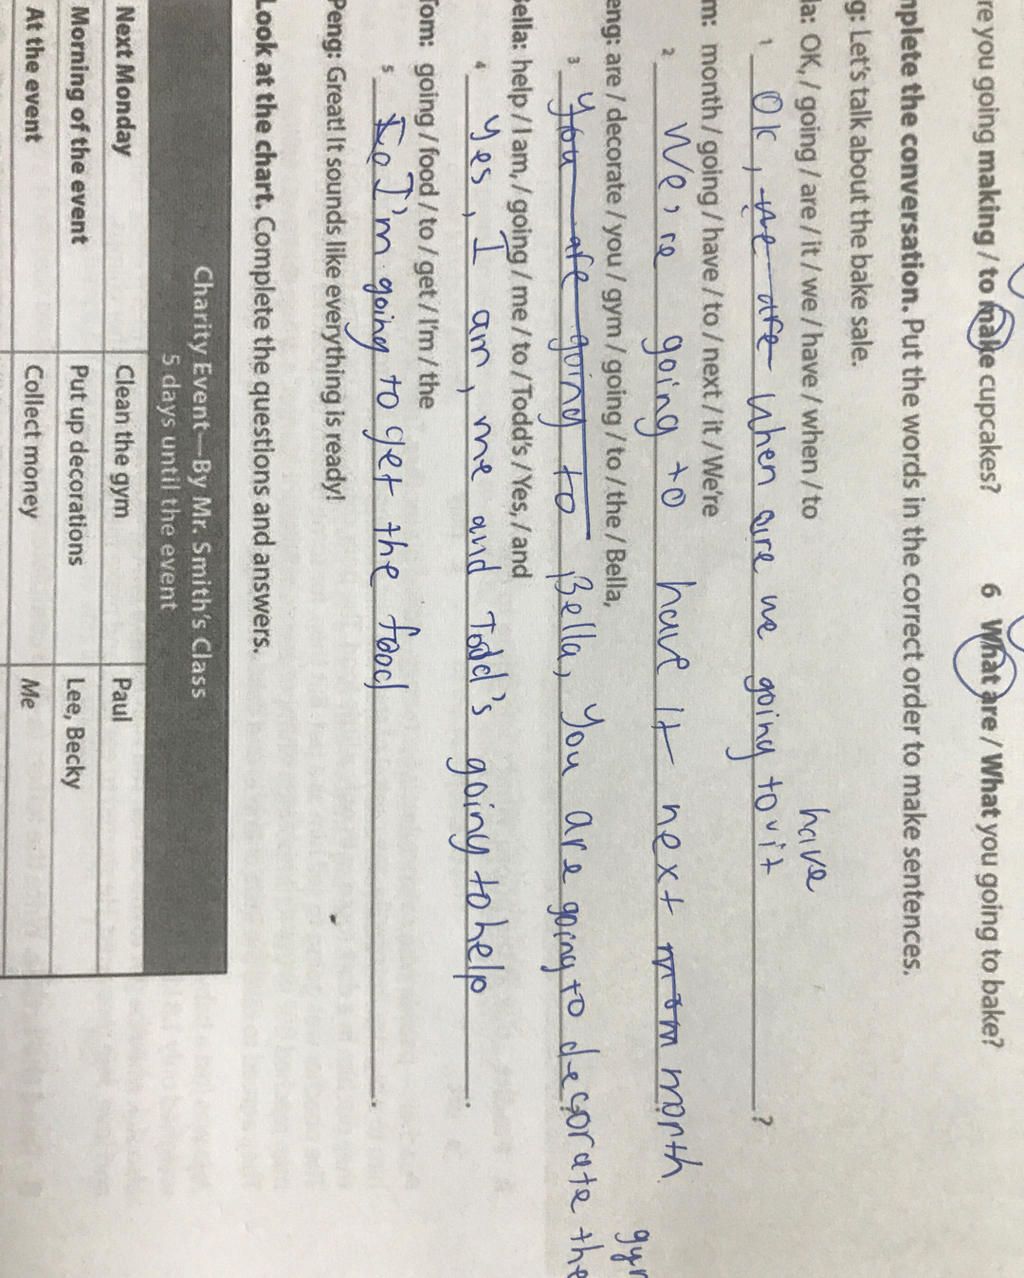 re you going making / to make cupcakes?
6 What are / What you going to bake?
nplete the conversation. Put the words in the correct order to make sentences.
g: Let's talk about the bake sale.
la: OK, / going / are / it / we / have / when / to
have
1 OK, we are when are we going to v it ?
m: month / going / have / to / next / it / We're
2 We're going to have it next mom month.
eng: are / decorate / you / gym / going / to / the / Bella,
gym
3 you are going to Bella, You are going to decorate the
Bella: help / I am, / going / me / to / Todd's / Yes, / and
4 Yes, I am, me and Todd's going to help .
Tom: going / food / to / get / I'm / the
5 I'm going to get the food .
Peng: Great! It sounds like everything is ready!
Look at the chart. Complete the questions and answers.
Charity Event—By Mr. Smith's Class
5 days until the event
Next Monday Clean the gym Paul
Morning of the event Put up decorations Lee, Becky
At the event Collect money Me